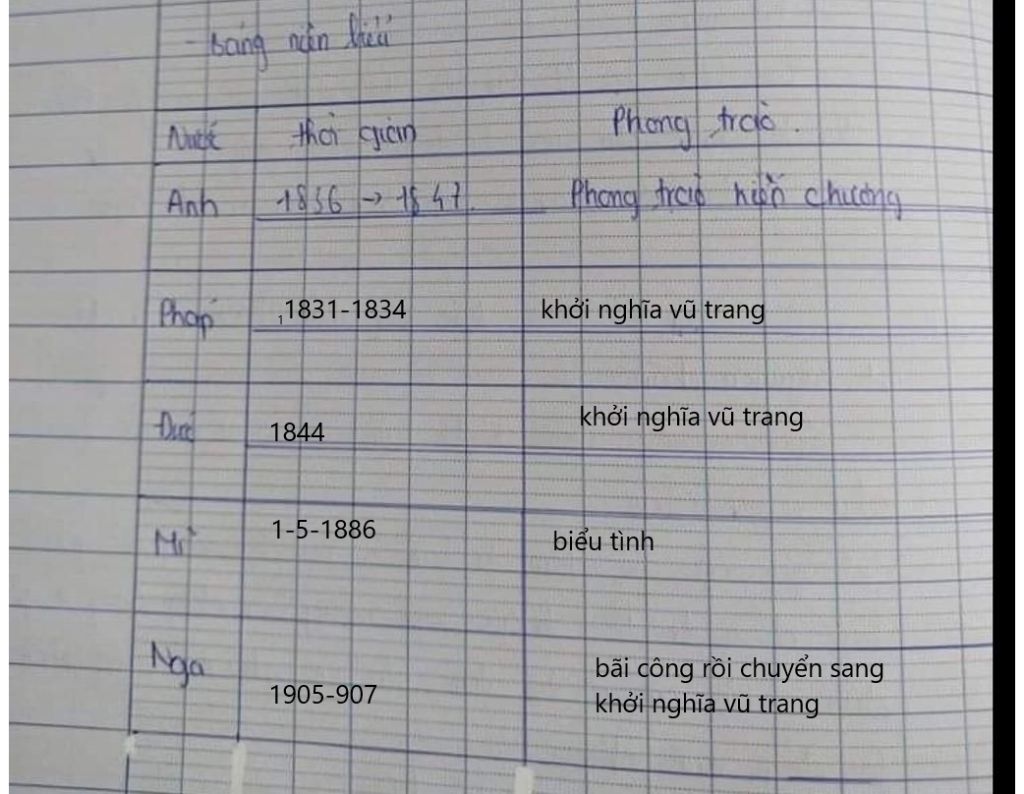 - bảng niên biểu
Nước thời gian Phong trào.
Anh 1836 → 1847. Phong trào hiến chương
Pháp 1 1831-1834 khởi nghĩa vũ trang
Đức 1844 khởi nghĩa vũ trang
Mĩ 1-5-1886 biểu tình
Nga 1905-907 bãi công rồi chuyển sang
khởi nghĩa vũ trang